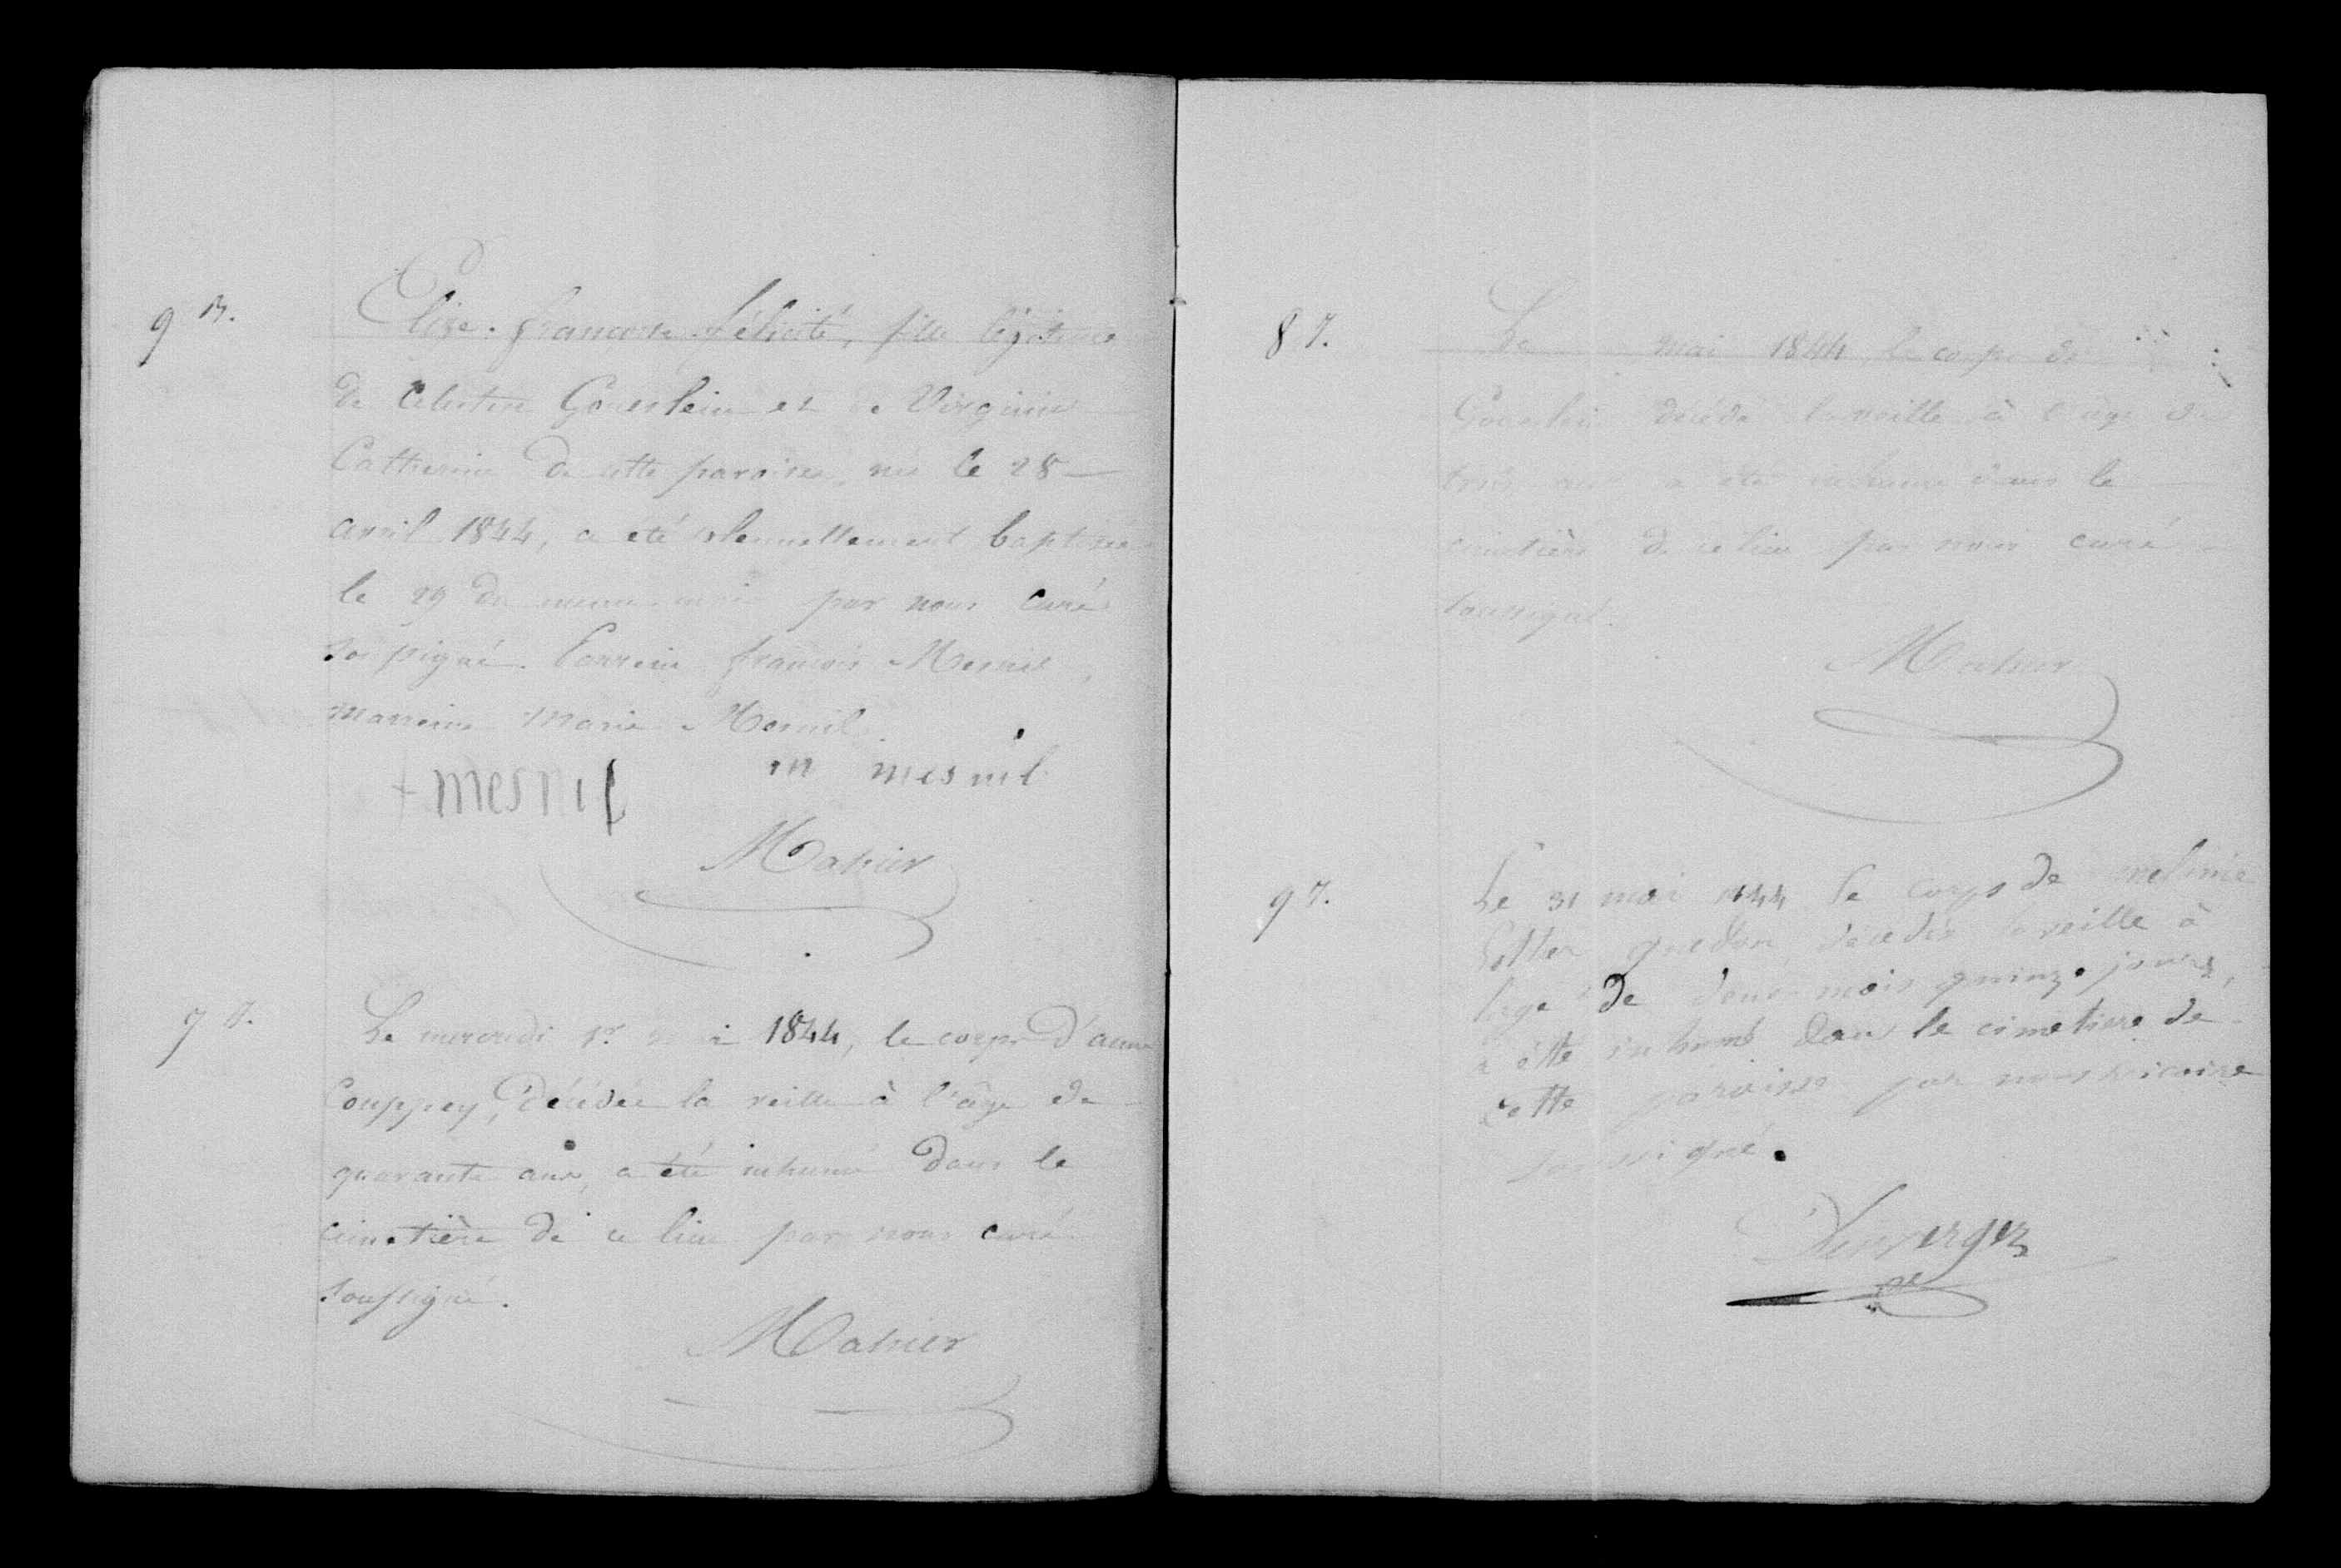 9 B.
Elise françoise félicité, fille légitime
de Celestin Goueslain et de Virginie
Catherine de cette paroisse, née le 28
avril 1844, a été solennellement baptisée
le 29 du même mois par nous curé
soussigné. Parrein françois Mesnil,
Marreine Marie Mesnil.
f mesnil m mesnil
Mahier
7 I.
Le mercredi 1er mai 1844, le corps d'anne
Couppey, décédée la veille à l'âge de
quarante ans, a été inhumé dans le
cimetière de ce lieu par nous curé
soussigné.
Mahier
8 I.
Le mai 1844 le corps de
décédé la veille à l'age de
trois a été inhumé dans le
cimetière de ce lieu par nous curé
soussigné.
Mahier
9 I.
Le 31 mai 1844 le corps de
décédée la veille à
lage de mois quinze jours,
a étté inhumé dans le cimetiere de
cette paroisse par nous vicaire
soussigné.